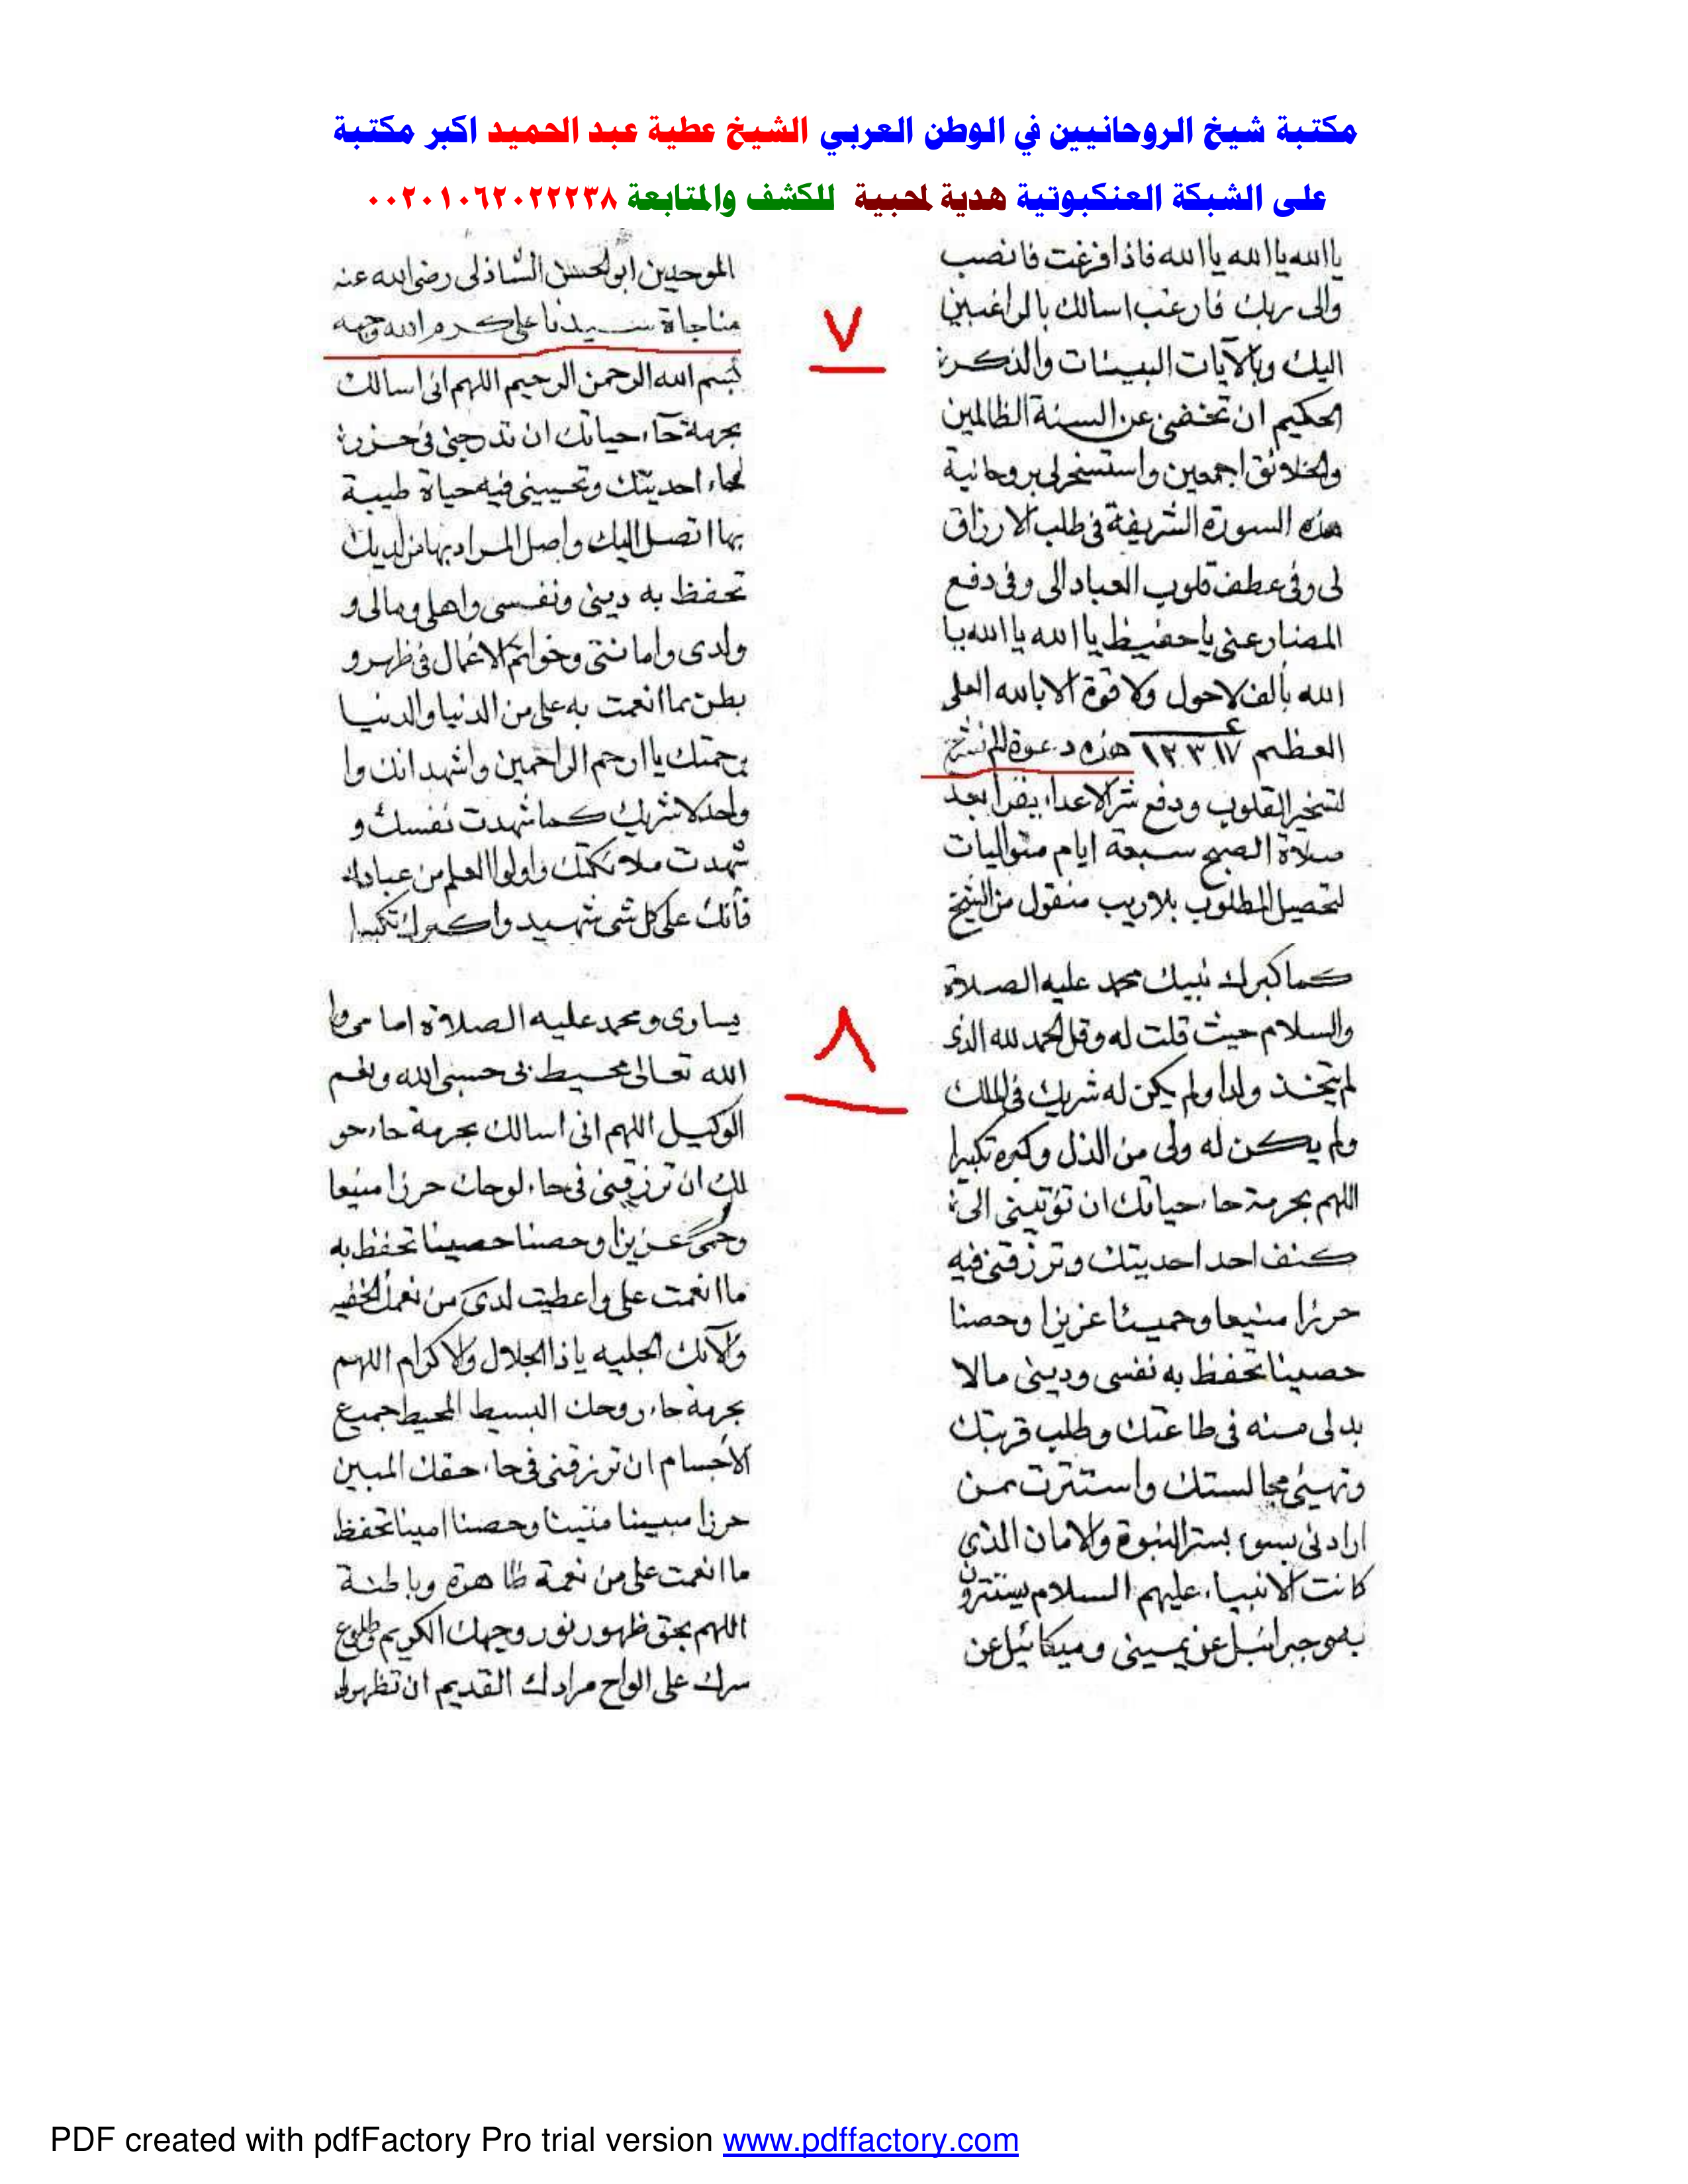 مكتبة شيخ الروحانيين في الوطن العربي الشيخ عطية عبد الحميد اكبر مكتبة
على الشبكة العنكبوتية هدية لمحبية للكشف والمتابعة ٠٠٢٠١٠٦٢٠٢٢٢٣٨
ياالله ياالله ياالله فاذا فرغت فانصب
والى ربك فارغب اسالك بالراغبين
اليك وبالآيات البينات والذكر
الحكيم ان تخفنى عن السنة الظالمين
والخلائق اجمعين واستسخر لى بروحانية
هذه السورة الشريفة فى طلب الارزاق
لى وفى عطف قلوب العباد الى وفى دفع
المضار عنى ياحفيظ ياالله ياالله يا
الله بألف لاحول ولا قوة الا بالله العلى
العظيم ١٢٣١٧ هذه دعوة الم نشرح
لتسخير القلوب ودفع شر الاعداء يقرأ بعد
صلاة الصبح سبعة ايام متواليات
لتحصيل المطلوب بلاريب منقول من الشيخ
الموحدين ابو الحسن الشاذلى رضى الله عنه
مناجاة سيدنا على كرم الله وجهه
٧
بسم الله الرحمن الرحيم اللهم انى اسالك
بحرمة حاء حياتك ان تدرجنى فى حرز
احديتك وتحيينى فيه حياة طيبة
بها اتصل اليك واصل المراد بها من لديك
تحفظ به دينى ونفسى واهلى ومالى و
ولدى وامانتى وخواتم الاعمال فى ظهر و
بطن مما انعمت به على من الدنيا والدنيا
برحمتك ياارحم الراحمين واشهد انك وا
واحد لاشريك كما شهدت نفسك و
شهدت ملائكتك واولوا العلم من عبادك
فأنك على كل شى شهيد واكبرك تكبيرا
كما كبرك نبيك محمد عليه الصلاة
والسلام حيث قلت له وقل الحمد لله الذى
لم يتخذ ولدا ولم يكن له شريك فى الملك
ولم يكن له ولى من الذل وكبره تكبيرا
اللهم بحرمة حاء حياتك ان تؤتينى الى
كنف احد احديتك وترزقنى فيه
حرزا منيعا وحميئا عزيزا وحصنا
حصينا تحفظ به نفسى ودينى مالا
بد لى منه فى طاعتك وطلب قربتك
وتهيئى مجالستك واستترت ممن
ارادنى بسوء بستر النبوة والامان الذى
كانت الانبياء عليهم السلام يستترون
به وجبرائيل عن يمينى وميكائيل عن
٨
يسارى ومحمد عليه الصلاة امامى وا
الله تعالى محيط بى حسبى الله ونعم
الوكيل اللهم انى اسالك بحرمة حاء حو
لك ان ترزقنى فى حاء لوحك حرزا منيعا
وحمى عزيزا وحصنا حصينا تحفظ به
ماانعمت على واعطيت لدى من نعمك الخفيه
والآئك الجليه ياذا الجلال والاكرام اللهم
بحرمة حاء روحك البسيط المحيط جميع
الاجسام ان ترزقنى فى حاء حقك المبين
حرزا مبينا متينا وحصنا امينا تحفظ
ماانعمت على من نعمة ظاهرة وباطنة
اللهم بحق ظهور نور وجهك الكريم وطلوع
سرك على الواح مرادك القديم ان تظهر لى
PDF created with pdfFactory Pro trial version www.pdffactory.com